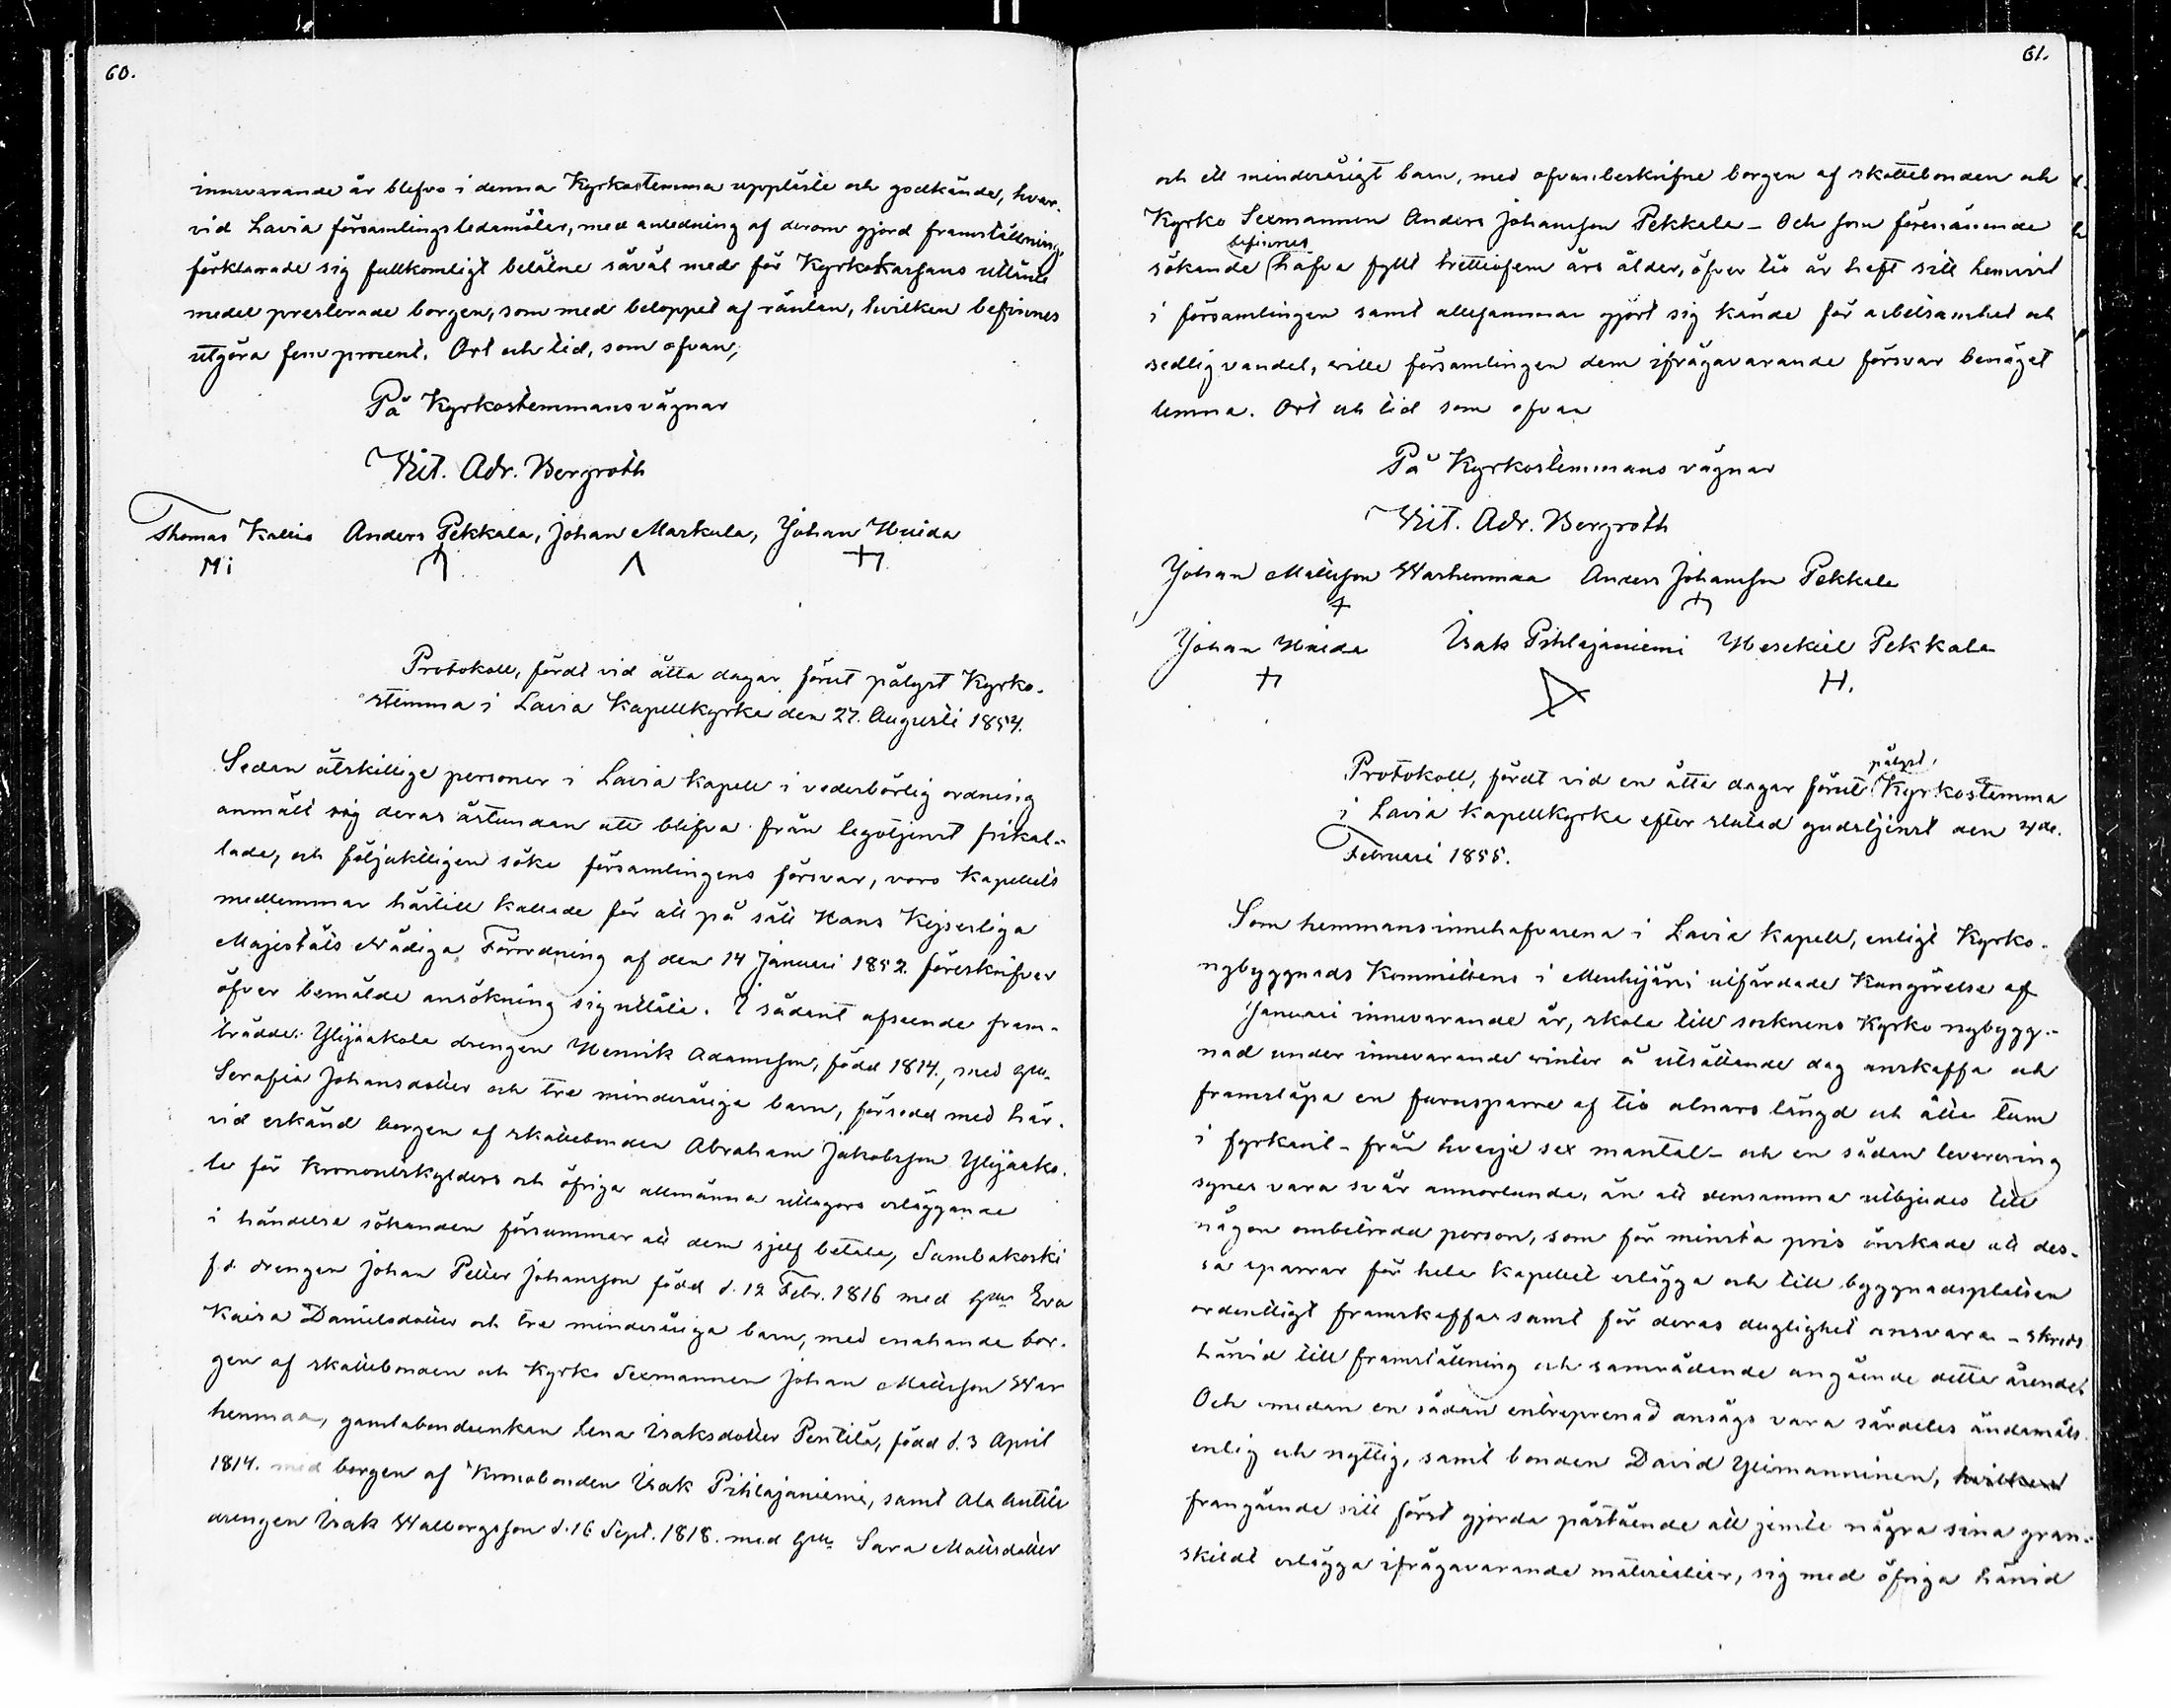 60.
innevarande år blefvo i denna Kyrkostemma uppläste och godkände, hvar-
vid Lavia församlingsledamöter, med anledning af derom gjord framställning,
förklarade sig fullkomligt belåtne såväl med för Kyrkokassans utlånte
medel presterade borgen, som med beloppet af räntan, hvilken befinnes
utgöra fem procent. Ort och tid, som ofvan,
På Kyrkostemmans vägnar
Vict. Adr. Bergroth
Thomas Kallio Anders Pekkala, Johan Markula, Johan Huida
Protokoll, fördt vid åtta dagar förut pålyst Kyrko-
stemma i Lavia Kapellkyrka den 27. Augusti 1854.
Sedan åtskillige personer i Lavia Kapell i vederbörlig ordning
anmält sig deras åstundan att blifva från legotjenst frikal-
lade, och följaktligen söka församlingens försvar, voro Kapellets
medlemmar härtill kallade för att på sätt Hans Kejserliga
Majestäts Nådiga Förordning af den 14 Januari 1852 föreskrifver
öfver bemälde ansökning sig utlåta. I sådant afseende fram-
trädde: Ylijaakola drengen Henrik Adamsson, född 1814., med hu.
Serafia Johansdotter och tre minderåriga barn, försedd med här-
vid erkänd borgen af skattebonden Abraham Jakobsson Ylijaako-
la för Kronoutskylders och öfriga allmänna utlagors erläggande
i händelse sökanden försummar att dem sjelf betala, Sambakoski
f.d. drengen Johan Petter Johansson född d. 12 Febr. 1816 med hu Eva
Kaisa Danielsdotter och tre minderåriga barn, med enahanda bor-
gen af skattebonden och Kyrko Sexmannen Johan Mattsson War
henmaa, gamlabondeenkan Lena Isaksdotter Pentilä, född d. 3 April
1814. med borgen af Kronobonden Isak Pihlajaniemi, samt Ala Antila
drengen Isak Walborgsson d. 16 Sept. 1818. med hu Sara Mattsdotter
61.
och ett minderårigt barn, med ofvanbeskrifne borgen af skattebonden och
Kyrko Sexmannen Anders Johansson Pekkala – Och som förenämnde
befinnes
sökande hafva fyllt trettiofem års ålder, öfver tio år haft sitt hemvist
i församlingen samt allesamman gjort sig kände för arbetsamhet och
sedlig vandel, wille församlingen dem ifrågavarande försvar benäget
lemna. Ort och tid som ofvan
På Kyrkostemmans vägnar
Vict. Adr. Bergroth
Johan Mattsson Warhenmaa Anders Johansson Pekkala
Johan Huida Isak Pihlajaniemi Hesekiel Pekkala
H.
pålyst,
Protokoll, fördt vid en åtta dagar förut Kyrkostemma
i Lavia Kapellkyrka efter slutad gudstjenst den 4de.
Februari 1855.
Som hemmansinnehafvarena i Lavia Kapell, enligt Kyrko-
nybyggnads Kommittens i Mouhijärvi utfärdade Kungörelse af
Januari innevarande år, skola till socknens Kyrko nybygg-
nad under innevarande winter å utsättande dag anskaffa och
framsläpa en furusparre af tio alnars längd och åtta tum
i fyrkant – från hvarje sex mantal – och en sådan leverering
synes vara svår annorlunda, än att densamma utbjudes till
någon ombetrodd person, som för minsta pris önskade att des-
sa sparrar för hela Kapellet erlägga och till byggnadsplatsen
ordentligt framskaffa samt för deras duglighet ansvara – skreds
härvid till framställning och samrådande angående detta ärendet
Och emedan en sådan entreprenad ansågs vara särdeles ändamåls
enlig och nyttig, samt bonden David Ylimanninen, hvilken
frangående sitt först gjorda påstående att jemte några sina gran-
skildt erlägga ifrågavarande materialier, sig med öfriga härvid